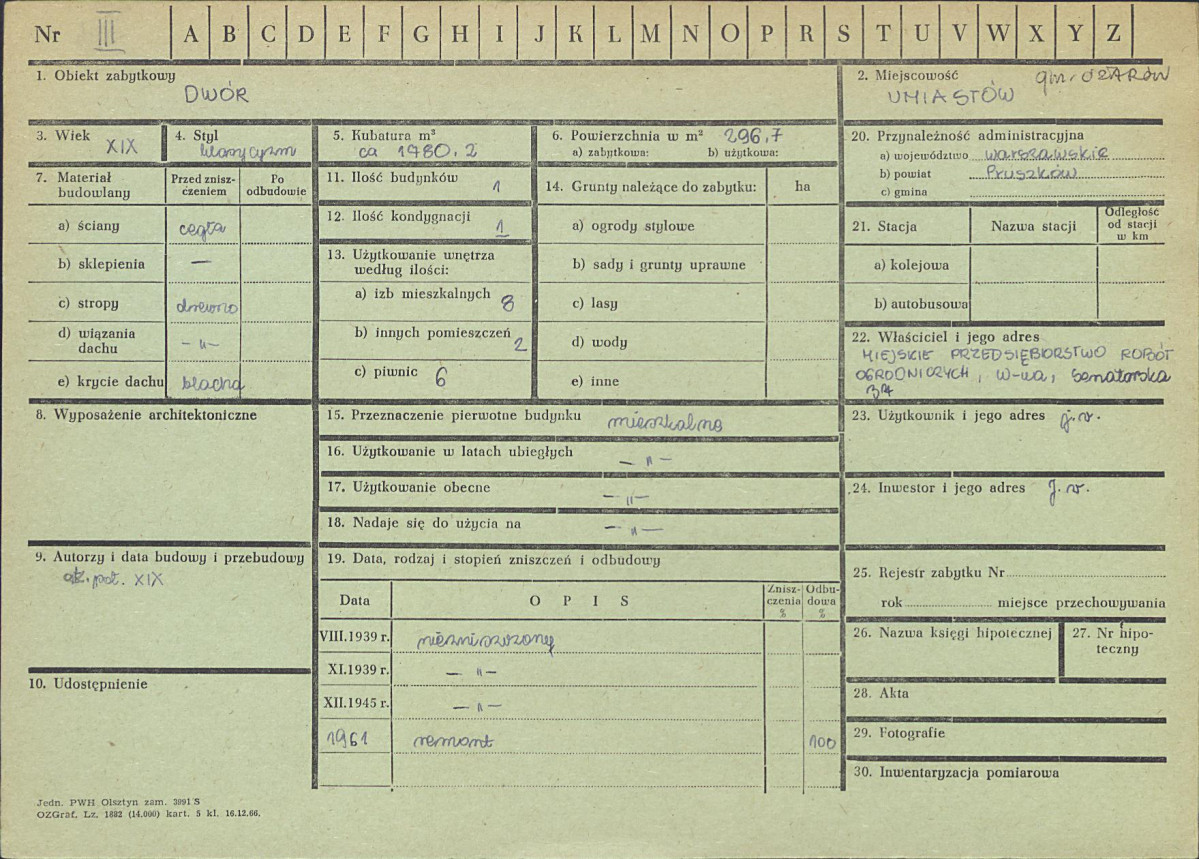 Nr III A B C D E F G H I J K L M N O P R S T U V W X Y Z
1. Obiekt zabytkowy
DWÓR
2. Miejscowość gm. OŻARÓW
UMIASTÓW
3. Wiek
XIX
4. Styl
klasycyzm
5. Kubatura m³
ca 1480,2
6. Powierzchnia w m² 296,7
a) zabytkowa: b) użytkowa:
7. Materiał budowlany
Przed zniszczeniem
Po odbudowie
a) ściany cegła
b) sklepienia —
c) stropy drewno
d) wiązania dachu – „ –
e) krycie dachu blacha
8. Wyposażenie architektoniczne
9. Autorzy i data budowy i przebudowy
poł. XIX
10. Udostępnienie
11. Ilość budynków 1
12. Ilość kondygnacji 1
13. Użytkowanie wnętrza
według ilości:
a) izb mieszkalnych 8
b) innych pomieszczeń 2
c) piwnic 6
14. Grunty należące do zabytku: ha
a) ogrody stylowe
b) sady i grunty uprawne
c) lasy
d) wody
e) inne
15. Przeznaczenie pierwotne budynku mieszkalne
16. Użytkowanie w latach ubiegłych – „ –
17. Użytkowanie obecne – „ –
18. Nadaje się do użycia na – „ –
19. Data, rodzaj i stopień zniszczeń i odbudowy
Data O P I S Zniszczenia % Odbudowa %
VIII.1939 r. niezniszczony
XI.1939 r. – „ –
XII.1945 r. – „ –
1961 remont 100
20. Przynależność administracyjna
a) województwo warszawskie
b) powiat Pruszków
c) gmina
21. Stacja Nazwa stacji Odległość od stacji w km
a) kolejowa
b) autobusowa
22. Właściciel i jego adres
MIEJSKIE PRZEDSIĘBIORSTWO ROBÓT
OGRODNICZYCH, W-wa, Senatorska
23. Użytkownik i jego adres j.w.
24. Inwestor i jego adres j.w.
25. Rejestr zabytku Nr
rok miejsce przechowywania
26. Nazwa księgi hipotecznej
27. Nr hipoteczny
28. Akta
29. Fotografie
30. Inwentaryzacja pomiarowa
Jedn. PWH Olsztyn zam. 3991 S
OZGraf. Lz. 1882 (14.000) kart. 5 kl. 16.12.66.